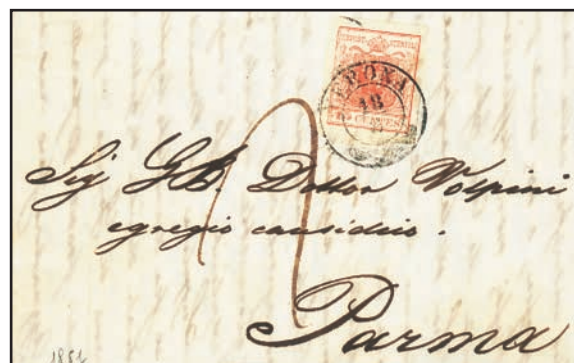 VERONA
18
CENTES
Sig G.B. Dottor Volpini
egregio causidico.
Parma
1851